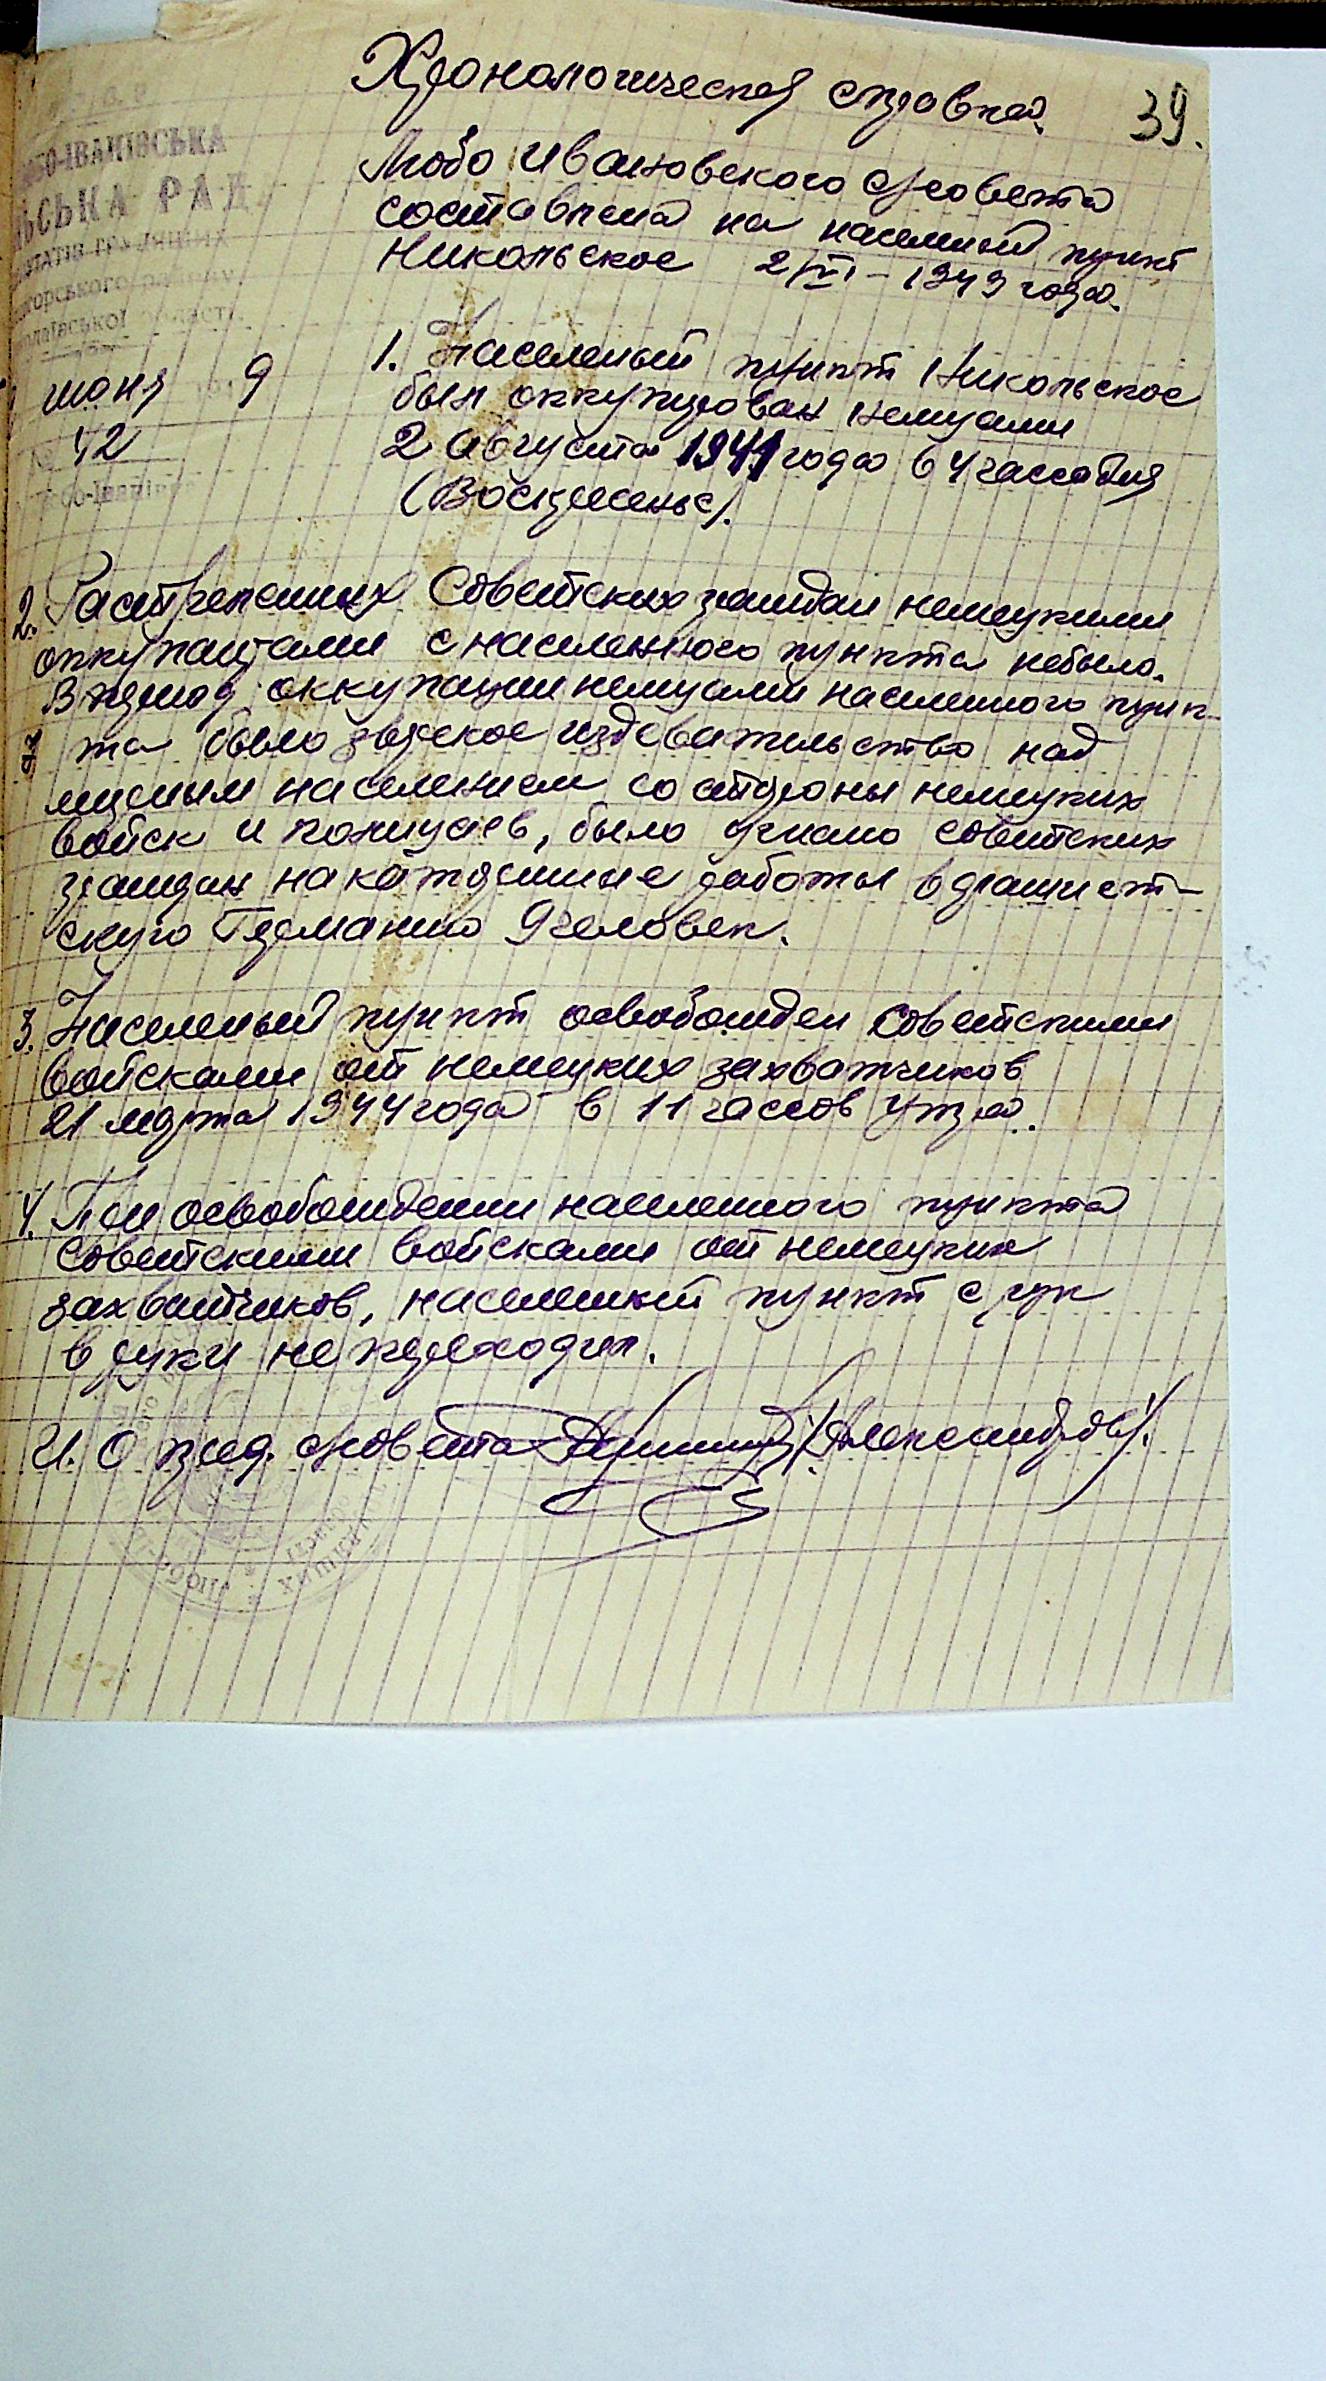 Хронологическая справка.
39.
Любо Ивановского с/совета
составлена на населеный пункт
Никольское 2/VI – 1949 года.
ІВАНІВСЬКА
СЬКА РАД
июня 9
42
1. Населеный пункт Никольское
был оккупирован немцами
2 августа 1941 года в 4 часса дня
(Воскресенье).
2. Растреленных Советских граждан немецкими
оккупантами с населенного пункта небыло.
В период оккупации немцами населенного пунк-
та было зверское издевательство над
мирным населением со стороны немецких
войск и полицаев, было угнано советских
граждан на каторжные работы в фашист-
скую Германию 9 человек.
3. Населеный пункт освобожден Советскими
войсками от немецких захватчиков
21 марта 1944 года в 11 чассов утра.
4. При освобождении населенного пункта
Советскими войсками от немецких
захватчиков, населенный пункт с рук
в руки не переходил.
И. О пред. с/совета /Александров/.